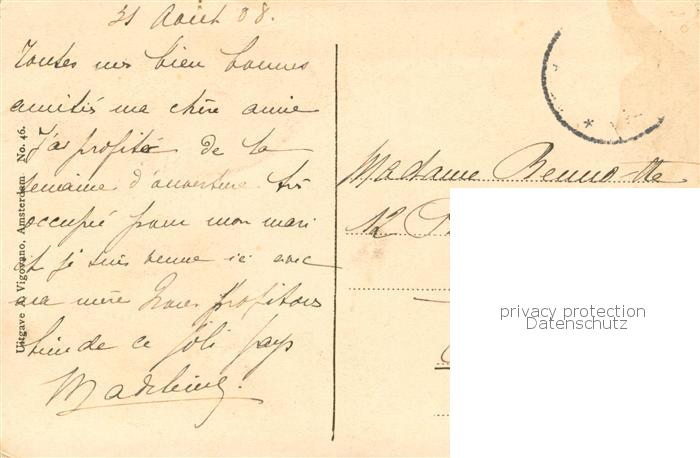 31 Aout 08.
Toutes mes bien bonnes
amitiés ma chère amie
J'ai profité de la
semaine d'ouverture très
occupée pour mon mari
et je suis venue ici avec
ma mère Nous profitons
bien de ce joli pays
Madeleine.
Uitgave A. Vigoveno, Amsterdam No. 46.
Madame
12
privacy protection
Datenschutz